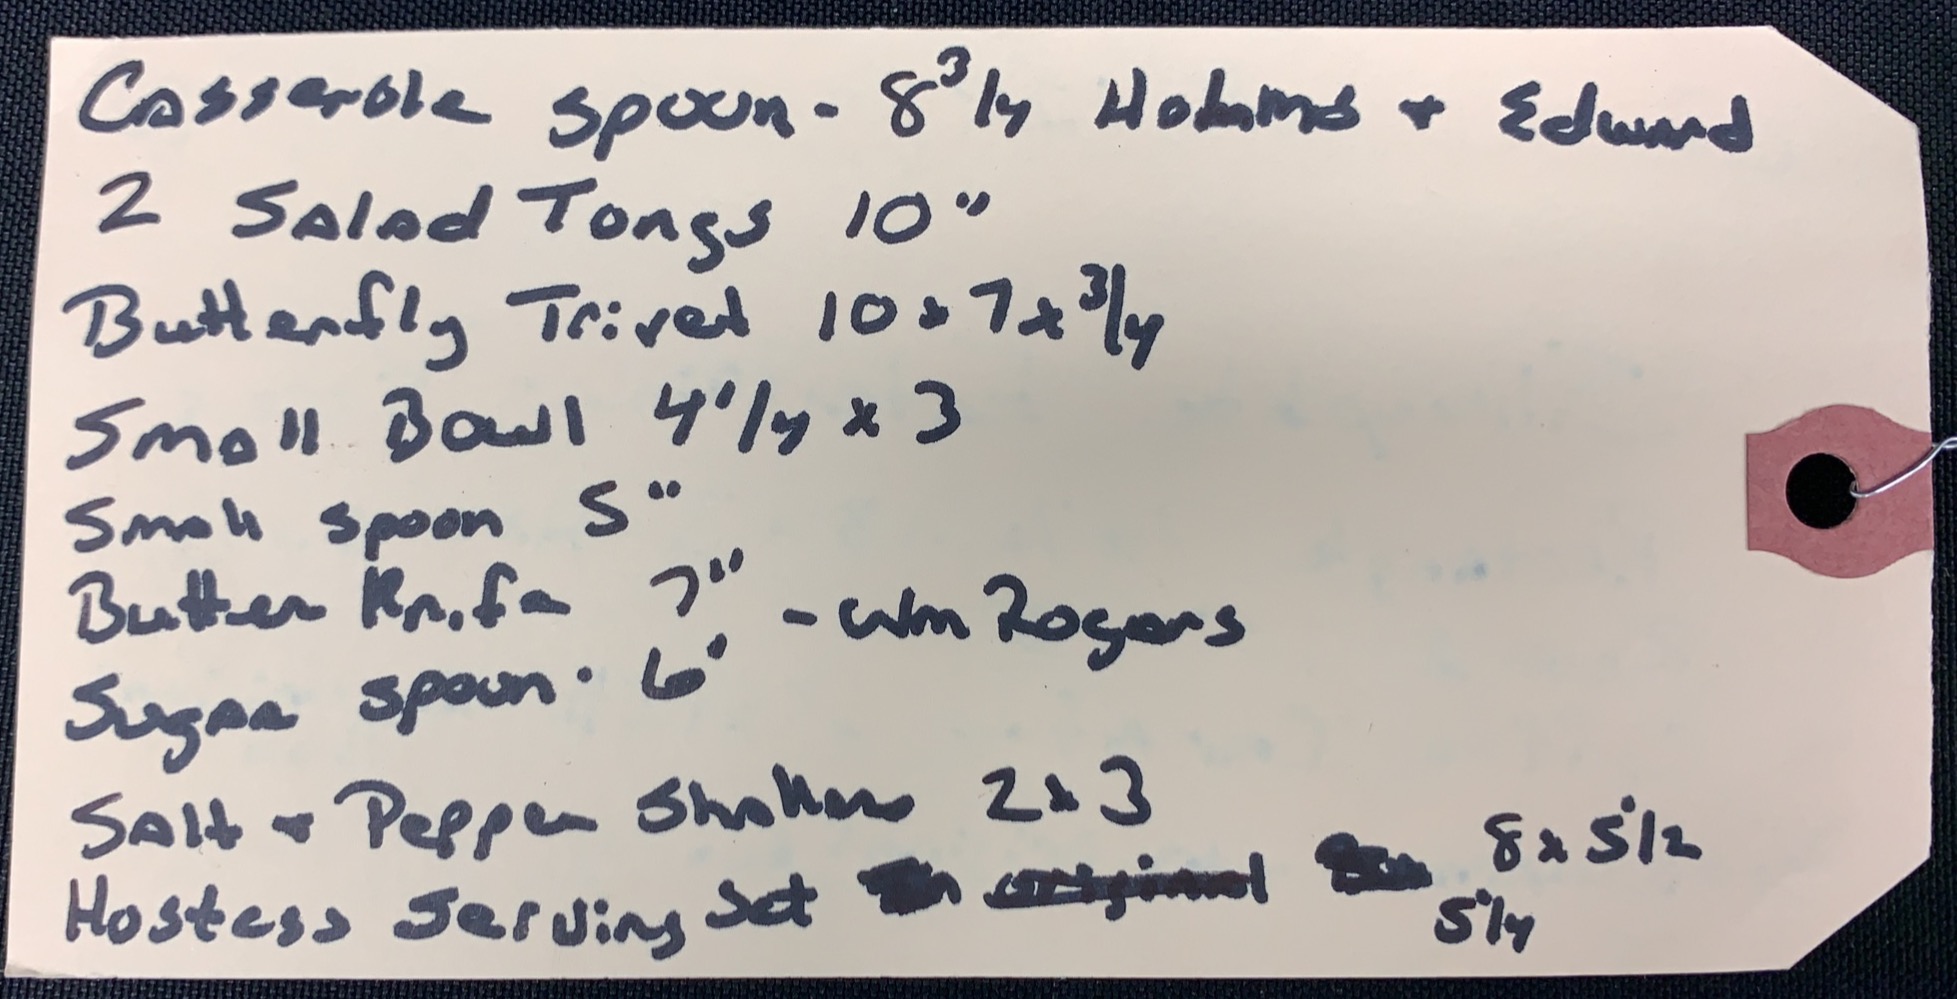 Casserole spoon - 8 3/4 Holmns + Edward
2 Salad Tongs 10"
Butterfly Trivet 10 x 7 x 3/4
Small Bowl 4 1/4 x 3
Small spoon 5"
Butter Knife 7" - Wm Rogers
Sugar spoon - 6"
Salt + Pepper Shakers 2 x 3
Hostess Serving Set original 8 x 5 1/2
5 1/4